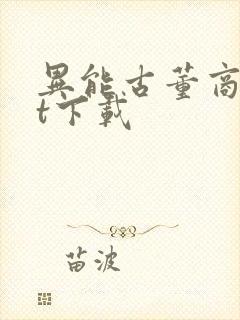 異能古董商
t下載
苗波